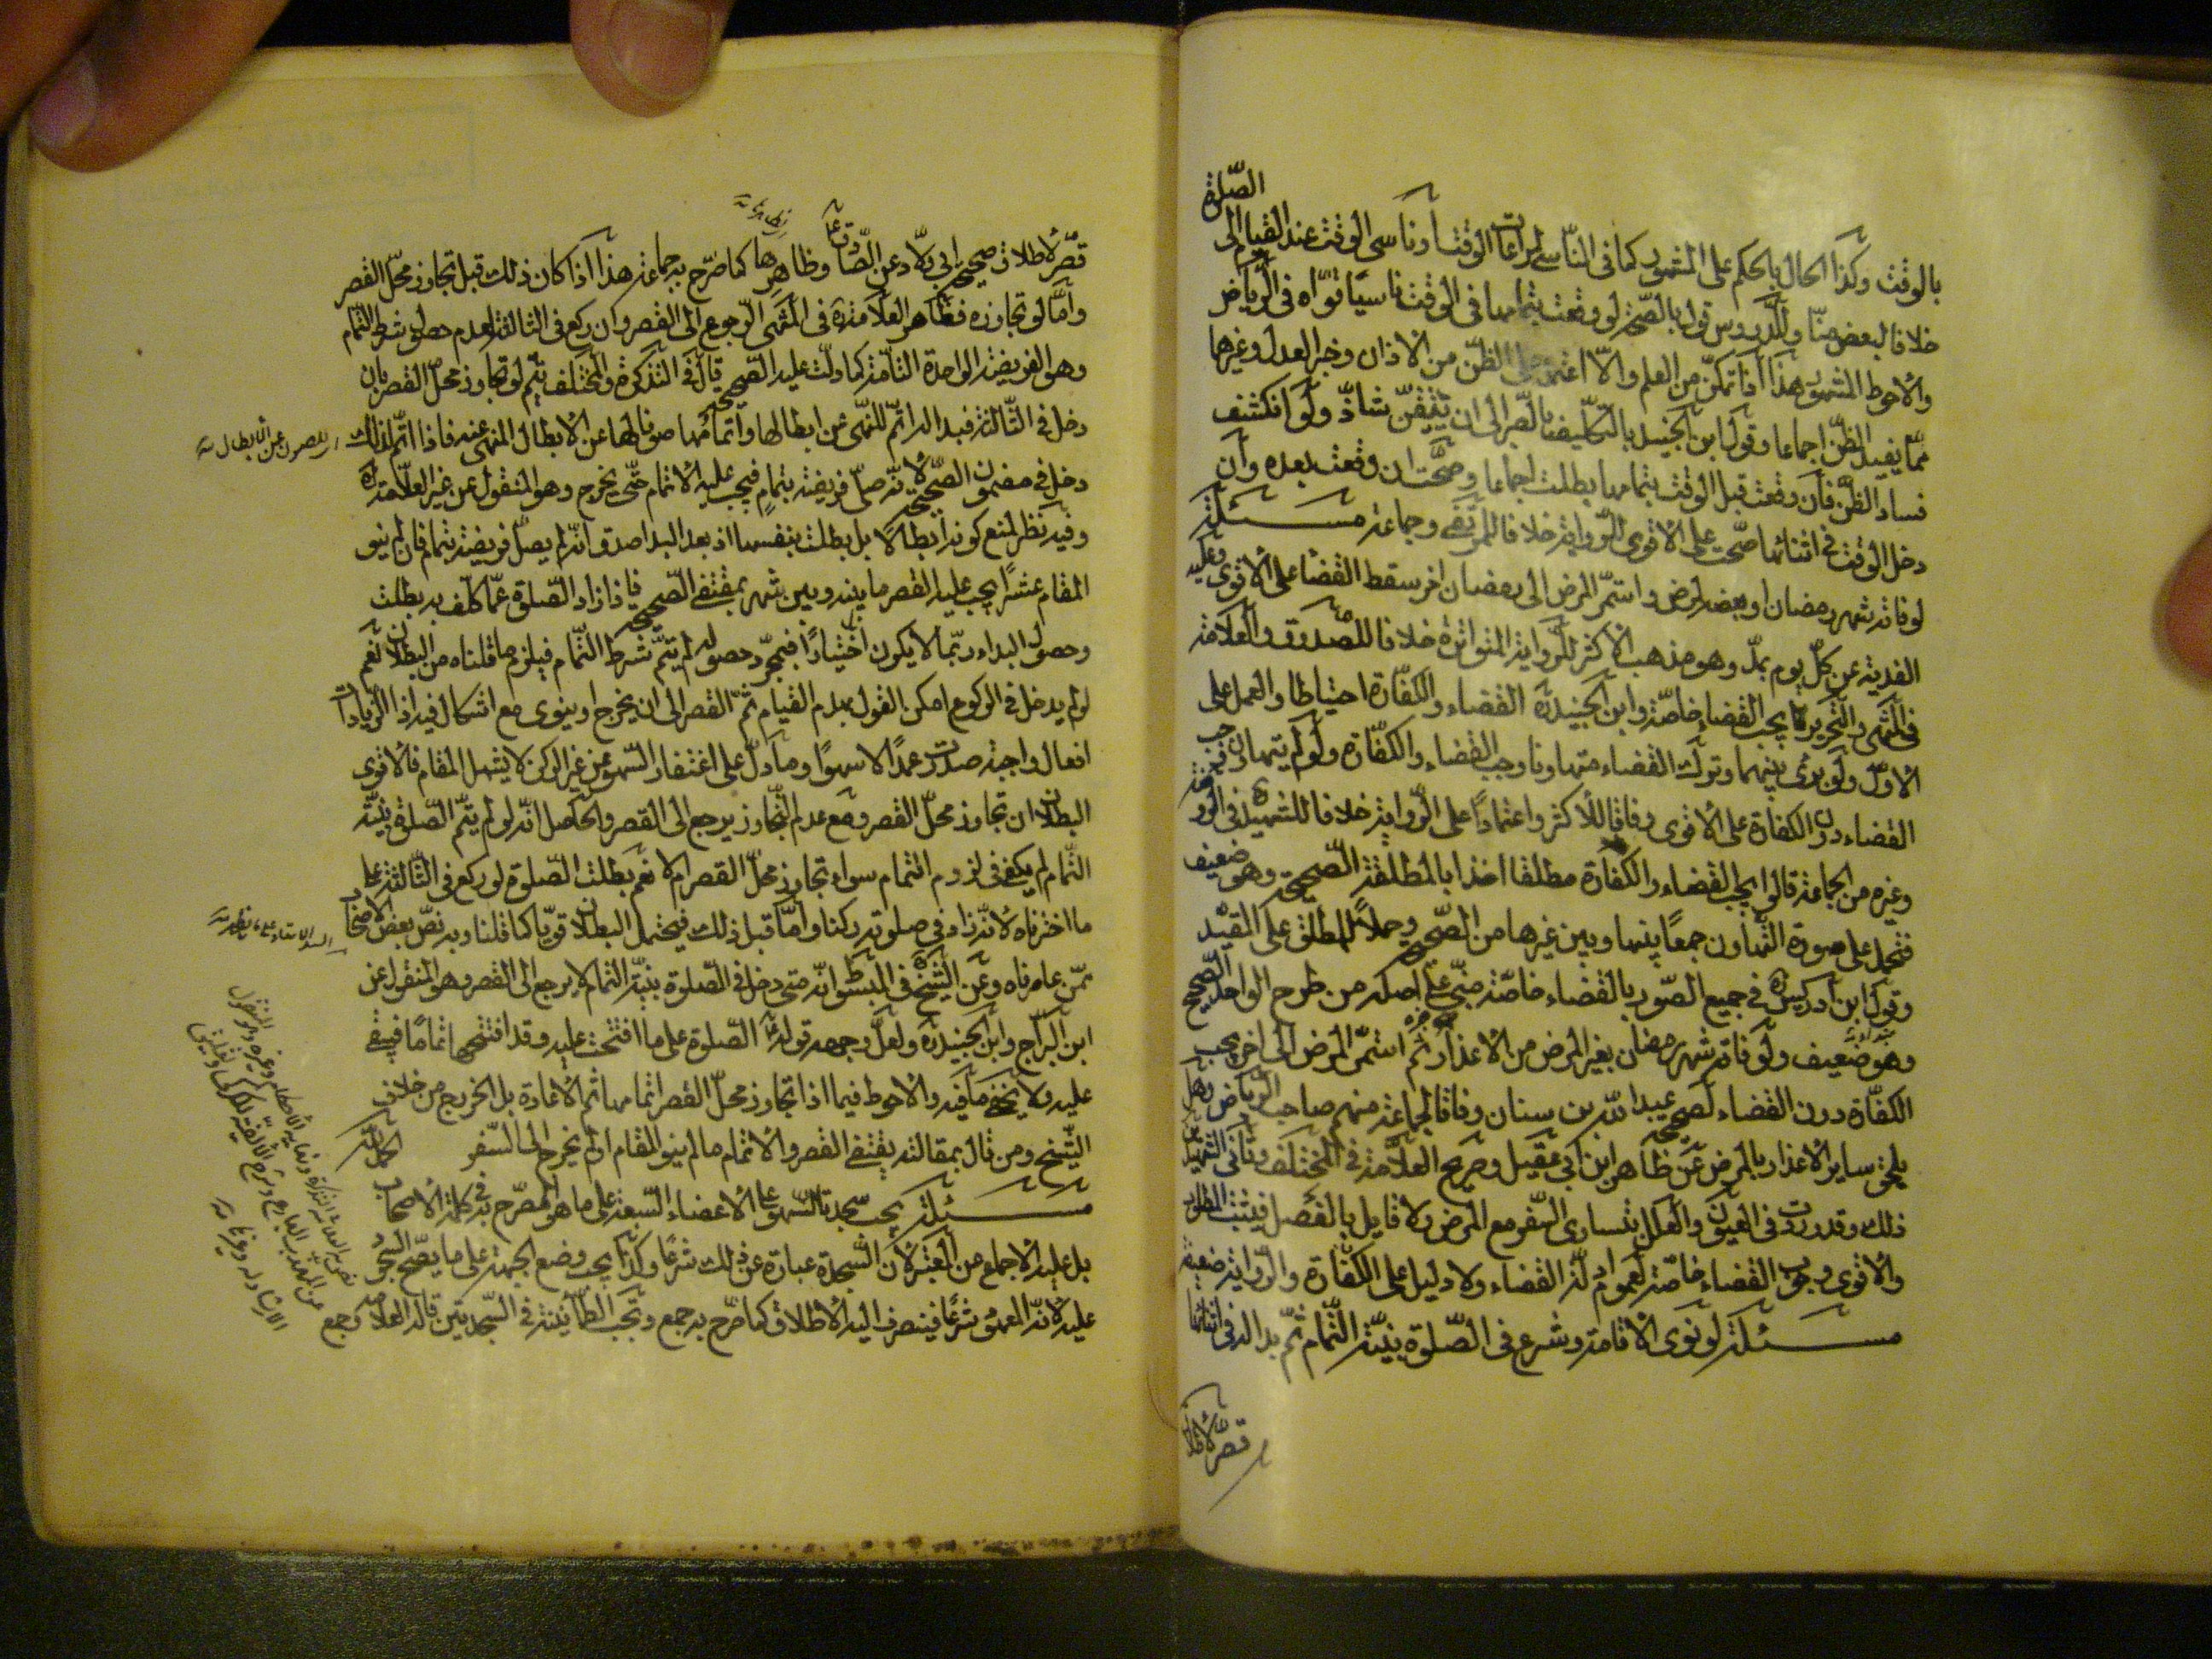 الصّلوة
بالوقت وكذا الحال بالحكم على المشهور كما فى النّاسى لمراعات الوقت أو ناسى الوقت عند القيام الى
خلافا لبعض منّا وللدروس قول بالصّحة لو وقعت بتمامها فى الوقت ناسيًا قوّاه فى الرّياض
والاحوط المشهور هذا اذا تمكّن من العلم والاّ اعتمد على الظنّ من الاذان وخبر العدل وغيرهما
ممّا يفيد الظنّ اجماعا وقول ابن الجنيد بالتكليف بالصّبر الى ان يتيقّن شاذّ ولو انكشف
فساد الظنّ فان وقعت قبل الوقت بتمامها بطلت اجماعا وصحّت ان وقعت بعده وان
دخل الوقت فى اثنائها صحّت على الاقوى للرّواية خلافا للمرتضى وجماعة مسئلة
لو فاته شهر رمضان او بعضه لمرض واستمرّ المرض الى رمضان اخر سقط القضاء على الاقوى وعليه
الفدية عن كلّ يوم بمدّ وهو مذهب الاكثر للرّواية المتواترة خلافا للصّدوق والعلّامة
فى المنتهى والتّحرير فيجب القضاء خاصّة وابن الجنيد ره القضاء والكفّارة احتياطا والعمل على
الاوّل ولو برئ بينهما وترك القضاء متهاونا وجب القضاء والكفّارة ولو لم يتهاون فيجب
القضاء دون الكفارة على الاقوى وفاقا للأكثر واعتمادًا على الرّواية خلافا للشّهيد فى
وغيره من الجماعة قالوا يجب القضاء والكفّارة مطلقا اخذا بالمطلقة الصّحيحة وهو ضعيف
فتحمل على صورة التّهاون جمعًا بينها وبين غيرها من الصّحيح وحملاً للمطلق على المقيّد
وقول ابن ادريس ره فى جميع الصّور بالقضاء خاصّة مبنى على اصله من طرح الواحد الصّحيح
وهو ضعيف ولو فاته شهر رمضان بغير المرض من الاعذار ثمّ استمرّ المرض الى اخر يجب
الكفّارة دون القضاء لصحيحة عبد الله بن سنان وفاقا لجماعة منهم صاحب الرّياض وهل
يلحق ساير الاعذار بالمرض عن ظاهر ابن ابى عقيل وصريح العلّامة فى المختلف وثانى الشّهيدين
ذلك وقد ورد فى العيون والعلل بتساوى السّفر مع المرض ولا قايل بالفصل فيثبت المطلوب
والاقوى وجوب القضاء خاصّة لعموم ادلّة القضاء ولا دليل على الكفّارة والرّواية ضعيفة
مسئلة لو نوى الاقامة وشرع فى الصّلوة بنيّة التّمام ثمّ بدا له فى اثنائها
قصّر لاطلاق
قصّر لاطلاق صحيحة ابى ولّاد عن الصّادق ع وظاهرها كما صرّح به جماعة هذا اذا كان ذلك قبل تجاوز محلّ القصر
وامّا لو تجاوزه فظاهر العلّامة ره فى المنتهى الرجوع الى القصر وان ركع فى الثالثة لعدم حصول شرط التّمام
وهى الفريضة الواحدة التّامة كما دلّت عليه الصّحيحة قال فى التذكرة والمختلف يتمّ لو تجاوز محلّ القصر بان
دخل فى الثّالثة فبدا له اتمّ للنّهى عن ابطالها واتمامها صونا لها عن الابطال المنهى عنه فاذا اتمّ لذلك
دخل فى مضمون الصّحيحة لانّه صلّى فريضة بتمام فيجب عليه الاتمام حتّى يخرج وهو المنقول عن غير العلّامة ره
وفيه نظر لمنع كونه ابطالا بل بطلت بنفسها اذ بعد البداء صدق انّه لم يصلّ فريضة بتمام فان لم ينو
المقام عشرًا يجب عليه القصر ما بينه وبين شهر بمقتضى الصّحيحة فاذا زاد الصّلوة عمّا كلّف به بطلت
وحصول البداء ربّما لا يكون اختيارًا فبمجرّد حصوله لم يتمّ شرط التّمام فيلزم ما قلناه من البطلان نعم
لو لم يدخل فى الركوع امكن القول بهدم القيام ثمّ القصر الى ان يخرج او ينوى مع اشكال فيه اذا الزيادات
افعال واجبة صدرت عمدًا لا سهوًا وما دلّ على اغتفار السّهو عن غير الركن لا يشمل المقام فالاقوى
البطلان ان تجاوز محلّ القصر ومع عدم التّجاوز يرجع الى القصر والحاصل انّه لو لم يتمّ الصّلوة بنيّة
التّمام لم يكف فى لزوم التمام سواء تجاوز محلّ القصر ام لا نعم بطلت الصّلوة لو ركع فى الثّالثة على
ما اخترناه لانّه زاد فى صلوته ركنا وامّا قبل ذلك فيحتمل البطلان قويّا كما قلنا وبه نصّ بعض الاصحاب
ممّن عاصرناه وعن الشّيخ ره فى المبسوط انّه متى دخل فى الصّلوة بنيّة التمام لا يرجع الى القصر وهو المنقول عن
ابن البرّاج وابن الجنيد ره ولعلّ وجهه قوله ع الصّلوة على ما افتتحت عليه وقد افتتحها تمامًا فيبقى
عليه ولا يخفى ما فيه والاحوط فيما اذا تجاوز محلّ القصر اتمامها ثم الاعادة بل الخروج من خلاف
الشّيخ ومن قال بمقالته يقتضى القصر والاتمام ما لم ينو المقام او لم يخرج الى السّفر
مسئلة يجب سجدتا السّهو على الاعضاء السّبعة على ما هو المصرّح به فى كلمة الاصحاب
بل عليه الاجماع من المعتبر لأن السّجدة عبارة عن ذلك شرعًا وكذا يجب وضع الجبهة على ما يصحّ السّجود
عليه لانّه المعهود شرعًا فينصرف اليه الاطلاق كما صرّح به جمع وتجب الطّمأنينة فى السّجدتين قاله العلّامة وجمع